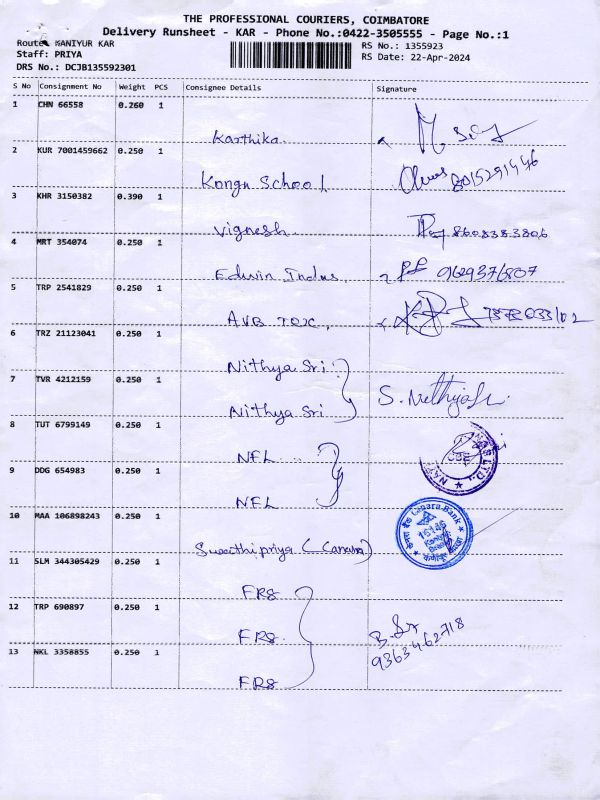 THE PROFESSIONAL COURIERS, COIMBATORE
Delivery Runsheet - KAR - Phone No.:0422-3505555 - Page No.:1
Route: KANIYUR KAR
RS No.: 1355923
Staff: PRIYA
RS Date: 22-Apr-2024
DRS No.: DCJB135592301
S No Consignment No Weight PCS Consignee Details Signature
1 CHN 66558 0.260 1
Karthika
2 KUR 7001459662 0.250 1
Kongu School 8015291446
3 KHR 3150382 0.390 1
Vignesh 8608383806
4 MRT 354074 0.250 1
Edwin Indus, 9629376807
5 TRP 2541829 0.250 1
AVB Tex,
6 TRZ 21123041 0.250 1
Nithya Sri
7 TVR 4212159 0.250 1
Nithya Sri S. Nithya
8 TUT 6799149 0.250 1
NFL
CBE
9 DDG 654983 0.250 1
NFL
10 MAA 106898243 0.250 1
Canara Bank
16146
Kaniyur
Branch
Swathipriya (Canara)
11 SLM 344305429 0.250 1
FRS
12 TRP 690897 0.250 1
FRS
9363462718
13 NKL 3358855 0.250 1
FRS